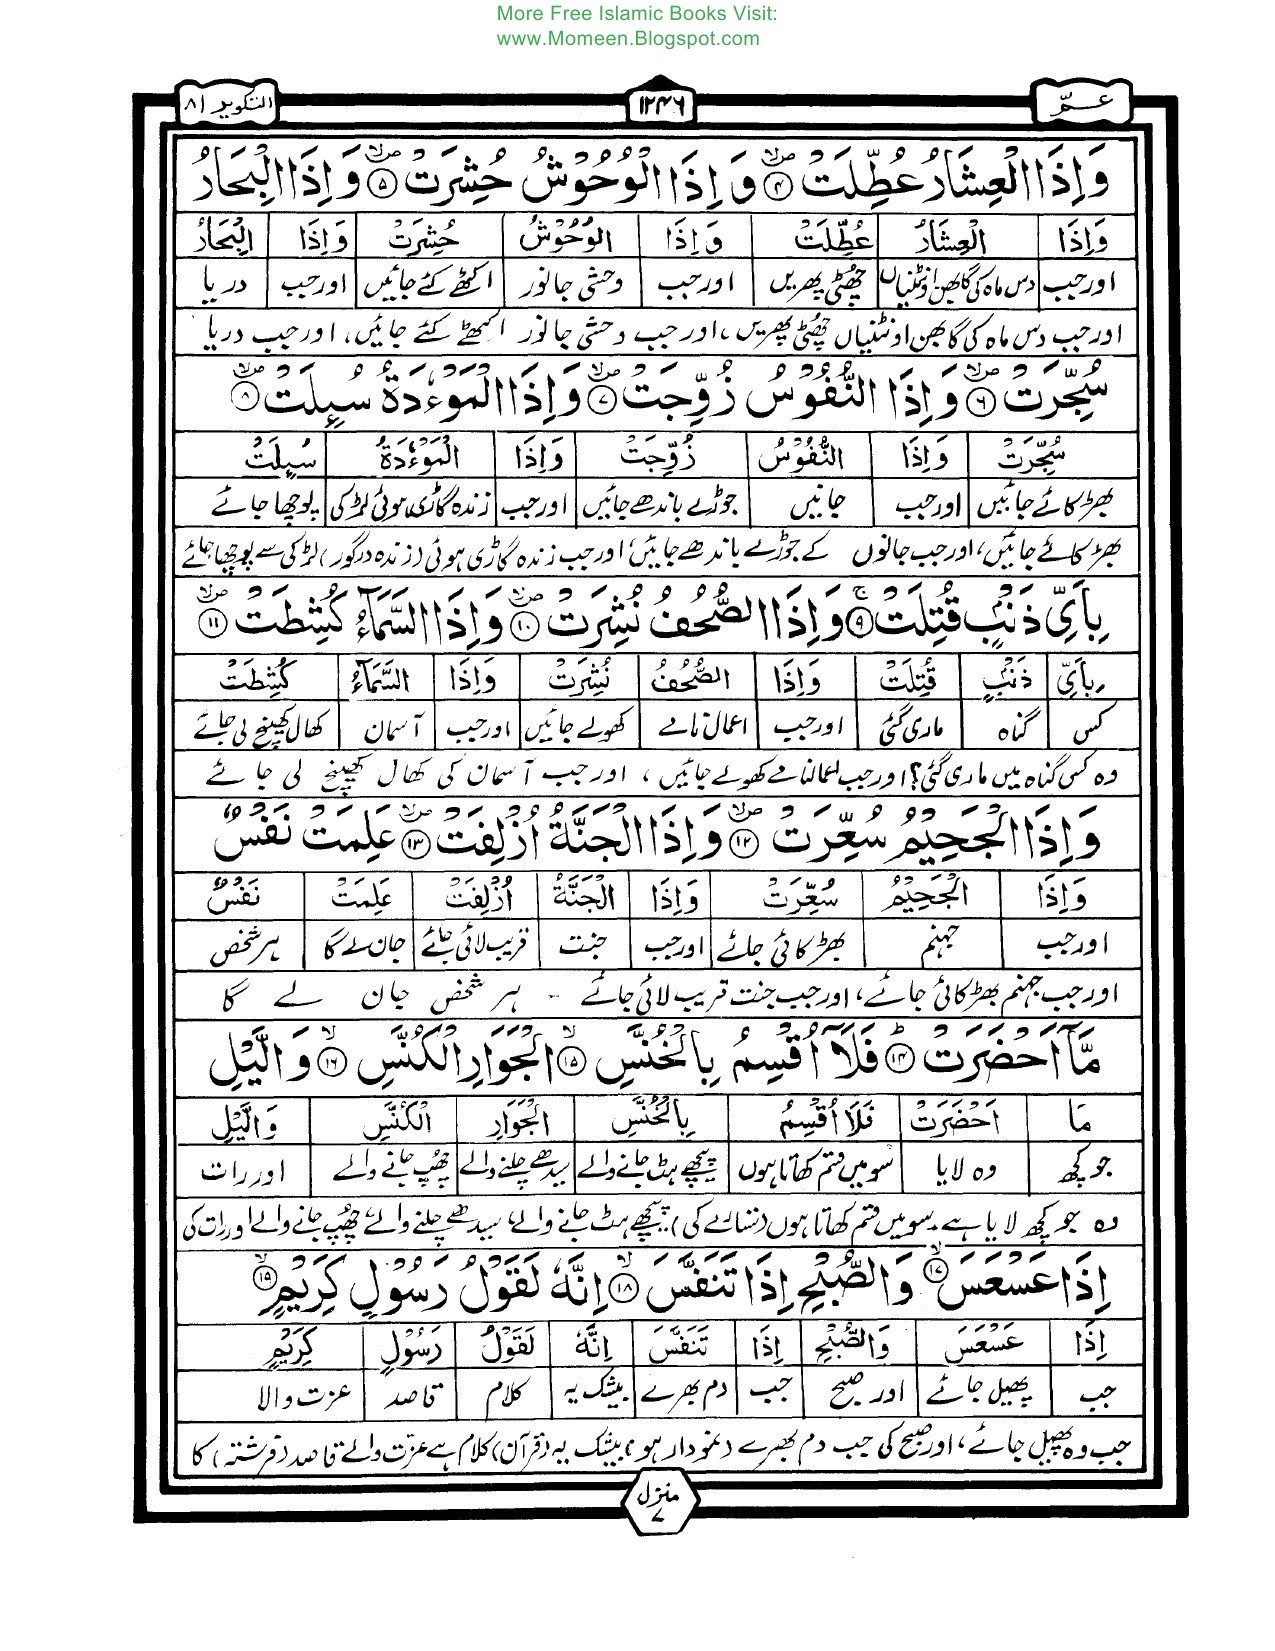 More Free Islamic Books Visit:
www.Momeen.Blogspot.com
عـمّ ١٢٤٦ التكوير ٨١
وَاِذَا الْعِشَارُ عُطِّلَتْ ۴ وَاِذَا الْوُحُوْشُ حُشِرَتْ ۵ وَاِذَا الْبِحَارُ
وَاِذَا الْعِشَارُ عُطِّلَتْ وَاِذَا الْوُحُوْشُ حُشِرَتْ وَاِذَا الْبِحَارُ
اور جب دس ماہ کی گابھن اونٹنیاں چھٹی پھریں اور جب وحشی جانور اکٹھے کئے جائیں اور جب دریا
اور جب دس ماہ کی گابھن اونٹنیاں چھٹی پھریں، اور جب وحشی جانور اکھٹے کئے جائیں، اور جب دریا
سُجِّرَتْ ۶ وَاِذَا النُّفُوْسُ زُوِّجَتْ ۷ وَاِذَا الْمَوْءٗدَةُ سُىِٕلَتْ ۸
سُجِّرَتْ وَاِذَا النُّفُوْسُ زُوِّجَتْ وَاِذَا الْمَوْءٗدَةُ سُىِٕلَتْ
بھڑکائے جائیں اور جب جانیں جوڑے باندھے جائیں اور جب زندہ گاڑی ہوئی لڑکی پوچھا جائے
بھڑکائے جائیں، اور جب جانوں کے جوڑے باندھے جائیں، اور جب زندہ گاڑی ہوئی (زندہ درگور) لڑکی سے پوچھا جائے
بِاَىِّ ذَنْۢبٍ قُتِلَتْ ۹ وَاِذَا الصُّحُفُ نُشِرَتْ ۱۰ وَاِذَا السَّمَآءُ كُشِطَتْ ۱۱
بِاَىِّ ذَنْۢبٍ قُتِلَتْ وَاِذَا الصُّحُفُ نُشِرَتْ وَاِذَا السَّمَآءُ كُشِطَتْ
کس گناہ ماری گئی اور جب اعمال نامے کھولے جائیں اور جب آسمان کھال کھینچ لی جائے
وہ کس گناہ میں ماری گئی؟ اور جب اعمالنامے کھولے جائیں، اور جب آسمان کی کھال کھینچ لی جائے
وَاِذَا الْجَحِيْمُ سُعِّرَتْ ۱۲ وَاِذَا الْجَنَّةُ اُزْلِفَتْ ۱۳ عَلِمَتْ نَفْسٌ
وَاِذَا الْجَحِيْمُ سُعِّرَتْ وَاِذَا الْجَنَّةُ اُزْلِفَتْ عَلِمَتْ نَفْسٌ
اور جب جہنم بھڑکائی جائے اور جب جنت قریب لائی جائے جان لے گا ہر شخص
اور جب جہنم بھڑکائی جائے، اور جب جنت قریب لائی جائے - ہر شخص جان لے گا
مَّاۤ اَحْضَرَتْ ۱۴ فَلَاۤ اُقْسِمُ بِالْخُنَّسِ ۱۵ الْجَوَارِ الْكُنَّسِ ۱۶ وَالَّيْلِ
مَا اَحْضَرَتْ فَلَاۤ اُقْسِمُ بِالْخُنَّسِ الْجَوَارِ الْكُنَّسِ وَالَّيْلِ
جو کچھ وہ لایا سو میں قسم کھاتا ہوں پیچھے ہٹ جانے والے سیدھے چلنے والے چھپ جانے والے اور رات
وہ جو کچھ لایا ہے۔ سو میں قسم کھاتا ہوں (ستارے کی) پیچھے ہٹ جانے والے، سیدھے چلنے والے، چھپ جانے والے اور رات کی
اِذَا عَسْعَسَ ۱۷ وَالصُّبْحِ اِذَا تَنَفَّسَ ۱۸ اِنَّهٗ لَقَوْلُ رَسُوْلٍ كَرِيْمٍ ۱۹
اِذَا عَسْعَسَ وَالصُّبْحِ اِذَا تَنَفَّسَ اِنَّهٗ لَقَوْلُ رَسُوْلٍ كَرِيْمٍ
جب پھیل جائے اور صبح جب دم بھرے بیشک یہ کلام قاصد عزت والا
جب وہ پھیل جائے، اور صبح کی جب دم بھرے (نمودار ہو) بیشک یہ (قرآن) کلام ہے عزّت والے قاصد (فرشتہ) کا
منزل ۷